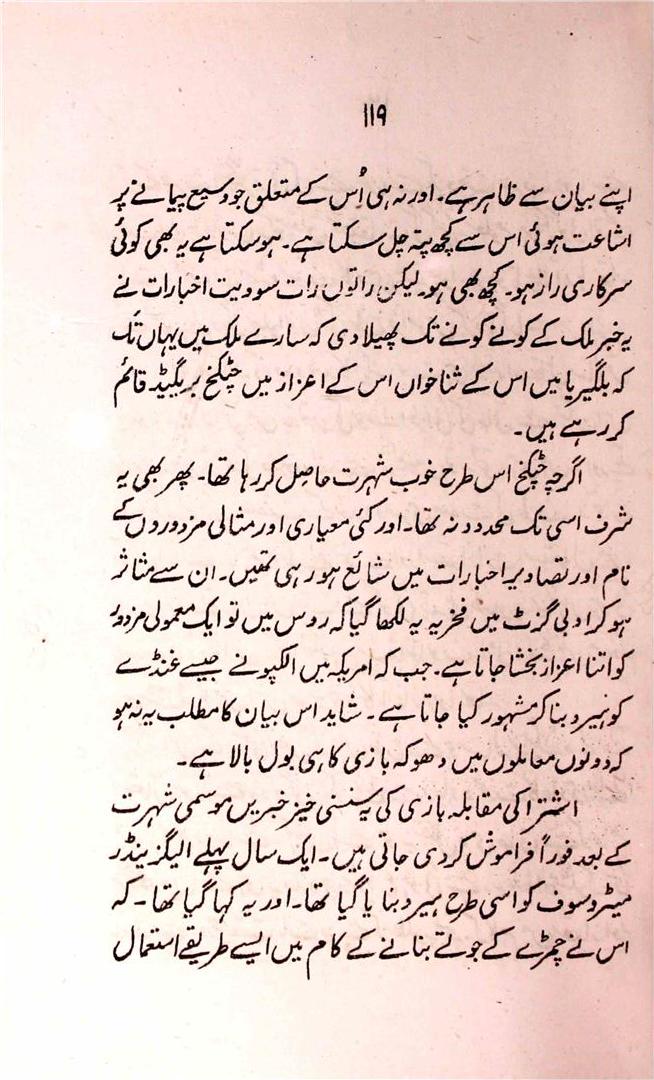 ۱۱۹
اپنے بیان سے ظاہر ہے۔ اور نہ ہی اُس کے متعلق جو وسیع پیمانے پر
اشاعت ہوئی اس سے کچھ پتہ چل سکتا ہے۔ ہو سکتا ہے یہ بھی کوئی
سرکاری راز ہو۔ کچھ بھی ہو۔ لیکن راتوں رات سوویت اخبارات نے
یہ خبر ملک کے کونے کونے تک پھیلا دی کہ سارے ملک میں یہاں تک
کہ بلگیریا میں اس کے ثنا خواں اس کے اعزاز میں چٹکخ بریگیڈ قائم
کر رہے ہیں۔
اگرچہ چٹکخ اس طرح خوب شہرت حاصل کر رہا تھا۔ پھر بھی یہ
شرف اسی تک محدود نہ تھا۔ اور کئی معیاری اور مثالی مزدوروں کے
نام اور تصاویر اخبارات میں شائع ہو رہی تھیں۔ ان سے متاثر
ہو کر ادبی گزٹ میں فخریہ یہ لکھا گیا کہ روس میں تو ایک معمولی مزدور
کو اتنا اعزاز بخشا جاتا ہے۔ جب کہ امریکہ میں الکپونے جیسے غنڈے
کو ہیرو بنا کر مشہور کیا جاتا ہے۔ شاید اس بیان کا مطلب یہ نہ ہو
کہ دونوں معاملوں میں دھوکہ بازی کا ہی بول بالا ہے۔
اشتراکی مقابلہ بازی کی یہ سنسنی خیز خبریں موسمی شہرت
کے بعد فوراً فراموش کر دی جاتی ہیں۔ ایک سال پہلے الیگزینڈر
میٹروسوف کو اسی طرح ہیرو بنایا گیا تھا۔ اور یہ کہا گیا تھا۔ کہ
اس نے چمڑے کے جوتے بنانے کے کام میں ایسے طریقے استعمال